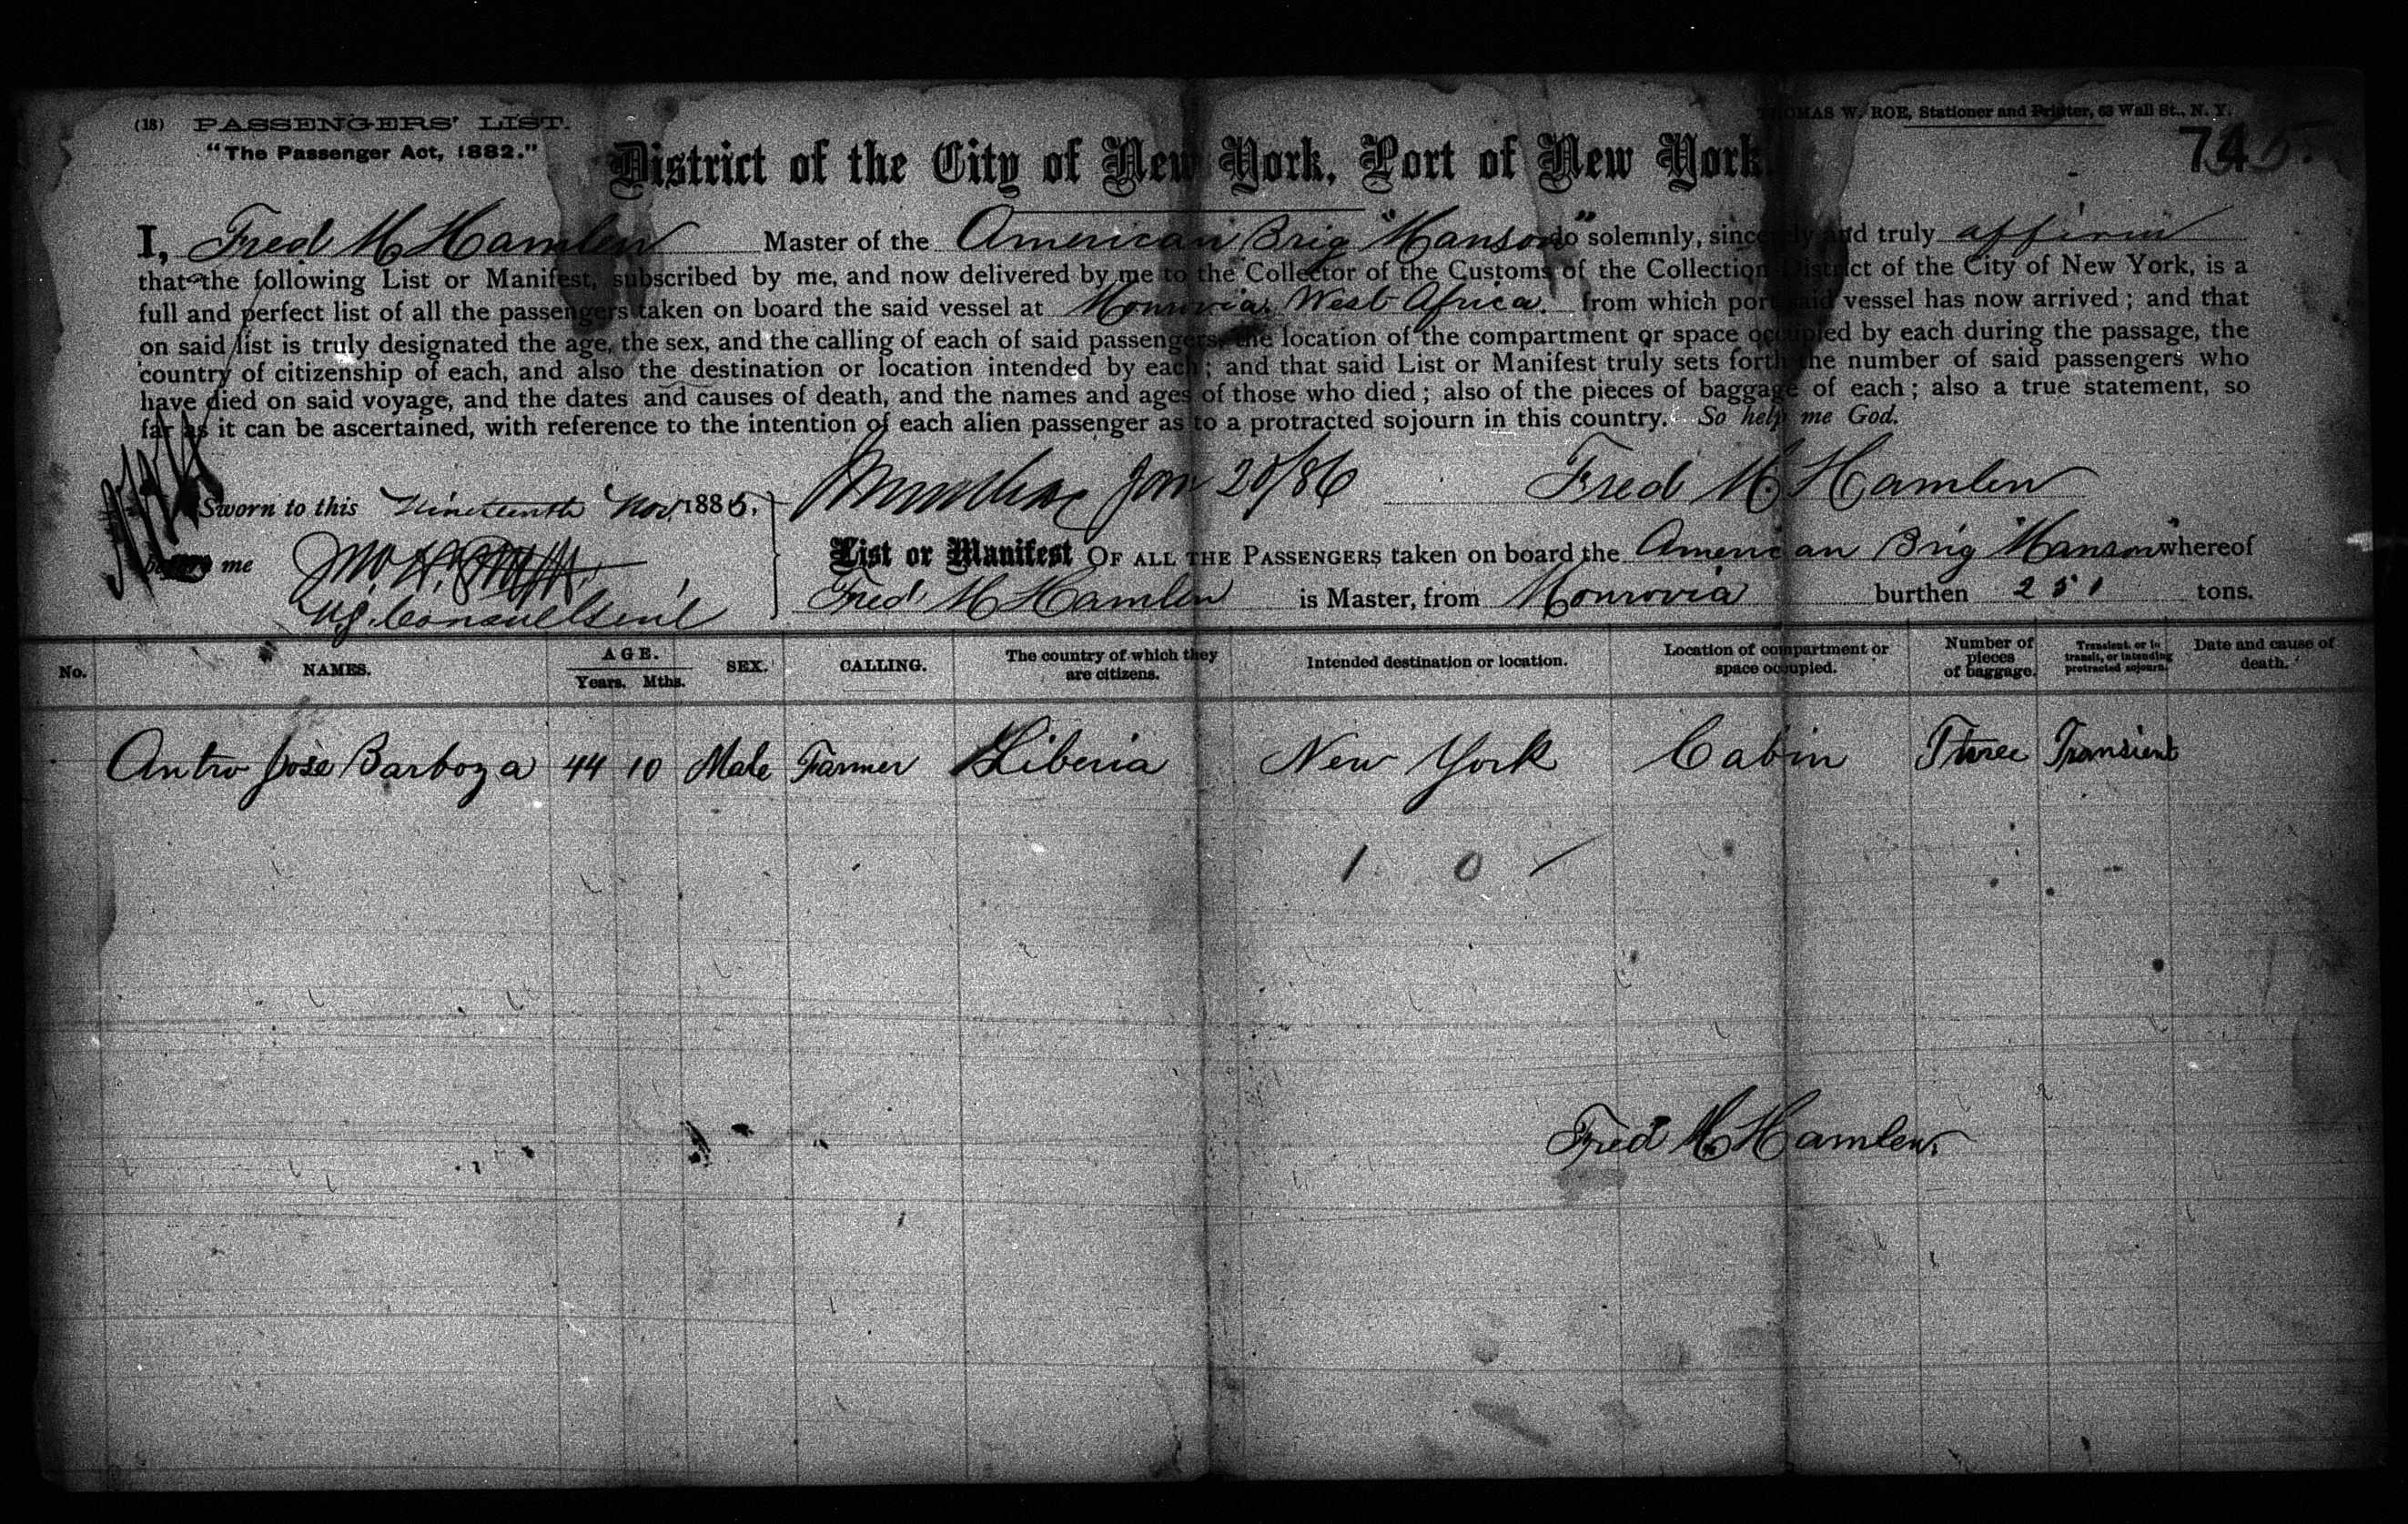 (18) PASSENGERS' LIST.
"The Passenger Act, 1882."
THOMAS W. ROE, Stationer and Printer, 63 Wall St., N. Y.
District of the City of New York, Port of New York.
74
I, Fred M Hamlen Master of the American Brig "Hanson" do solemnly, sincerely and truly affirm
that the following List or Manifest, subscribed by me, and now delivered by me to the Collector of the Customs of the Collection District of the City of New York, is a
full and perfect list of all the passengers taken on board the said vessel at Monrovia. West Africa. from which port said vessel has now arrived; and that
on said list is truly designated the age, the sex, and the calling of each of said passengers, the location of the compartment or space occupied by each during the passage, the
country of citizenship of each, and also the destination or location intended by each; and that said List or Manifest truly sets forth the number of said passengers who
have died on said voyage, and the dates and causes of death, and the names and ages of those who died; also of the pieces of baggage of each; also a true statement, so
far as it can be ascertained, with reference to the intention of each alien passenger as to a protracted sojourn in this country. So help me God.
Jan 20/86 Fred M. Hamlen
Sworn to this Nineteenth Nov. 1885,
before me
List or Manifest OF ALL THE PASSENGERS taken on board the American Brig "Hanson" whereof
Fred M Hamlen is Master, from Monrovia burthen 251 tons.
No. NAMES. AGE. Years. Mths. SEX. CALLING. The country of which they are citizens. Intended destination or location. Location of compartment or space occupied. Number of pieces of baggage. Transient, or in transit, or intending protracted sojourn. Date and cause of death.
Antro Jose Barboza 44 10 Male Farmer Liberia New York Cabin Three Transient
1 0
Fred M Hamlen.